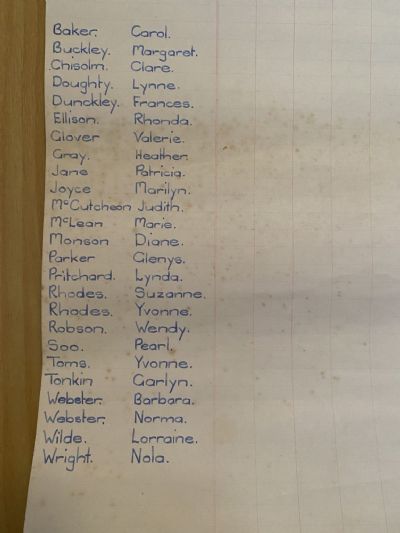 Baker. Carol.
Buckley. Margaret.
Chisolm. Clare.
Doughty. Lynne.
Dunckley. Frances.
Ellison. Rhonda.
Glover Valerie.
Gray. Heather.
Jane Patricia.
Joyce Marilyn.
McCutcheon Judith.
McLean Marie.
Monson Diane.
Parker Glenys.
Pritchard. Lynda.
Rhodes. Suzanne.
Rhodes. Yvonne.
Robson. Wendy.
Soo. Pearl.
Toms. Yvonne.
Tonkin Garlyn.
Webster. Barbara.
Webster. Norma.
Wilde. Lorraine.
Wright. Nola.